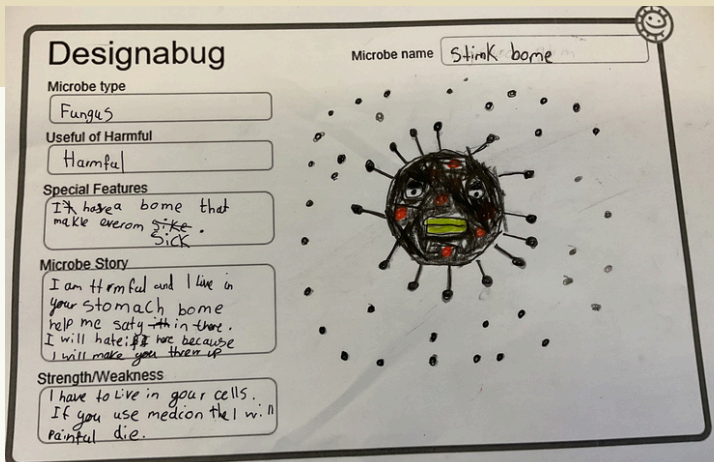 Designabug
Microbe name Stink bome
Microbe type
Fungus
Useful of Harmful
Harmful
Special Features
It have a bome that
makle everom sike .
sick
Microbe Story
I am Harmful and I live in
your stomach bome
help me saty in there.
I will hate because
I will make you threw up
Strength/Weakness
I have to live in your cells.
If you use medicon the I will
painful die.